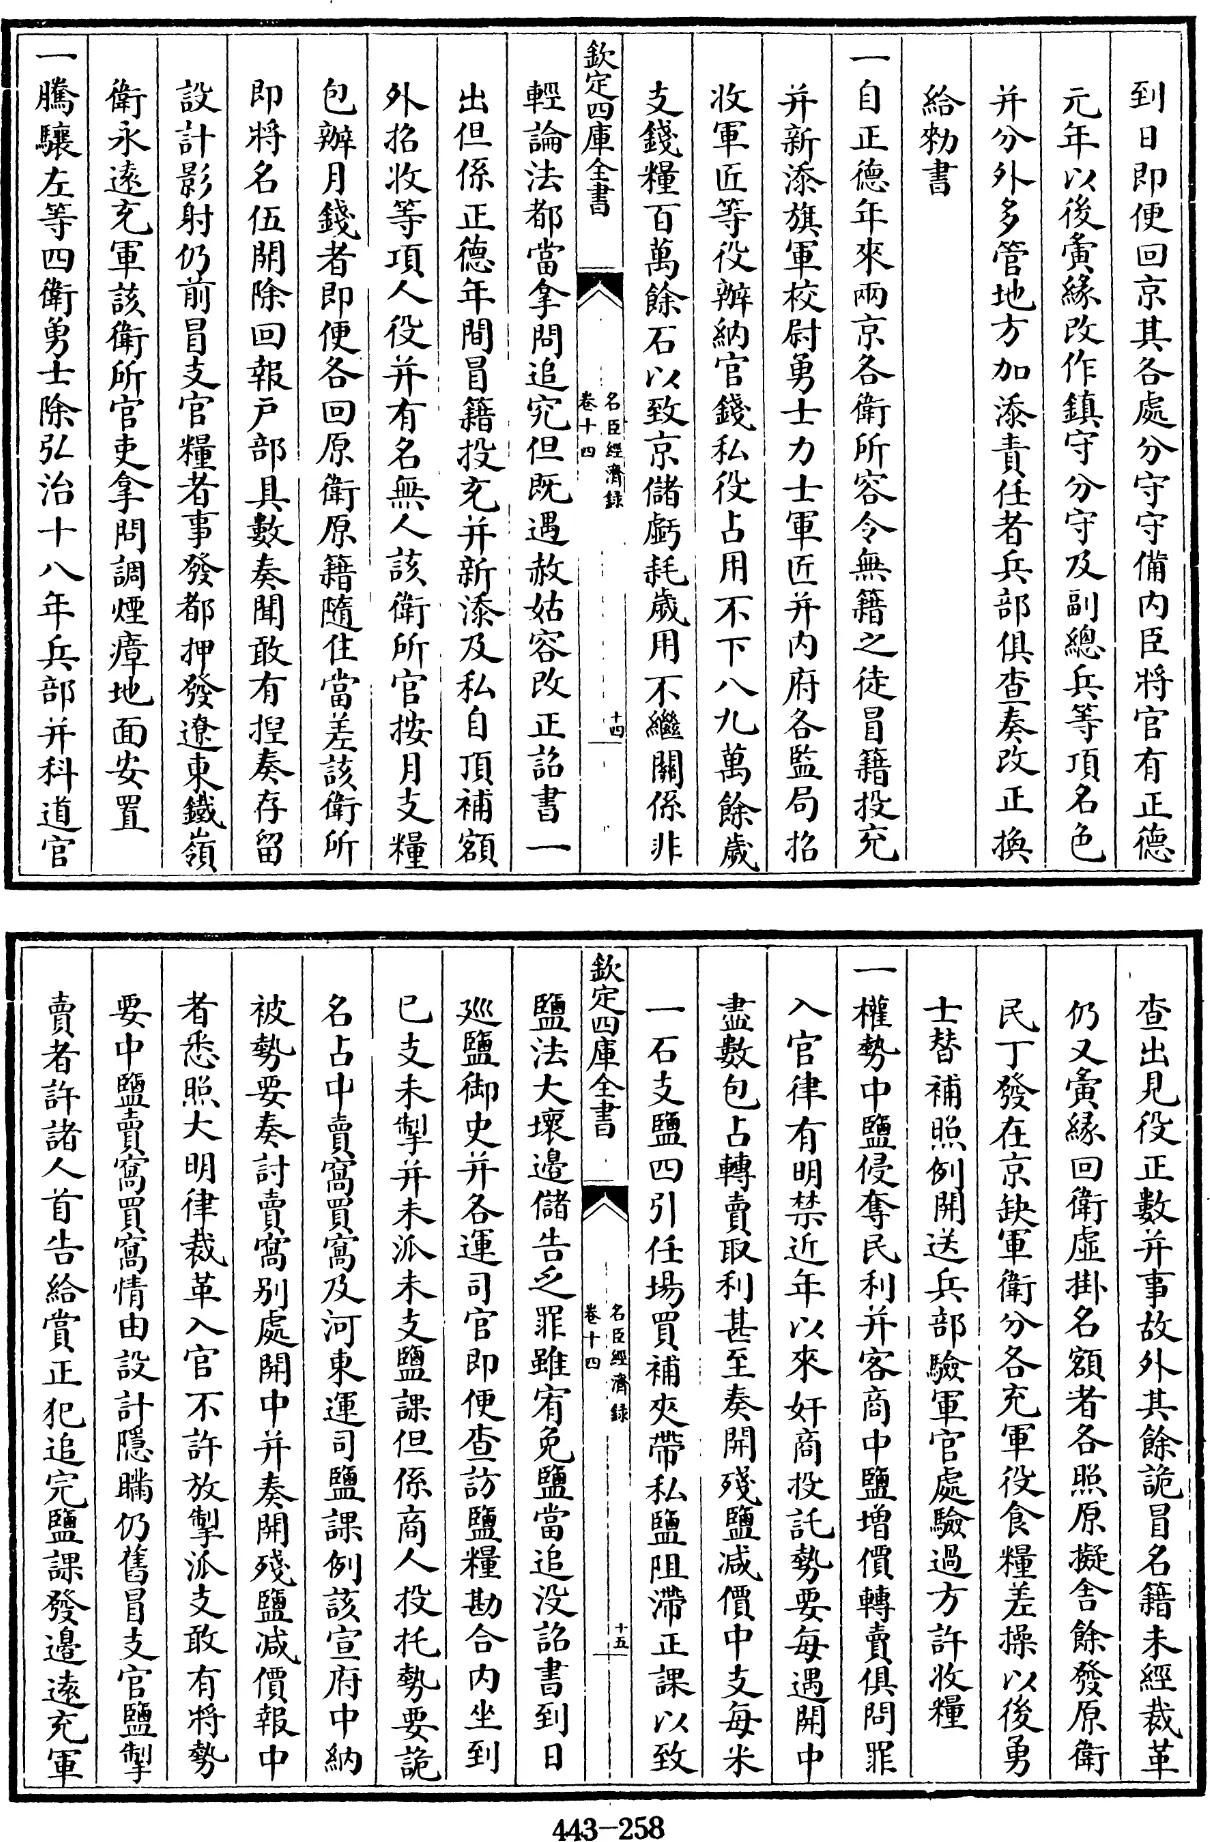 到日即便回京其各處分守守備内臣將官有正德
元年以後夤緣改作鎮守分守及副總兵等項名色
并分外多管地方加添責任者兵部俱查奏改正換
給勑書
一自正德年來兩京各衛所容令無籍之徒冒籍投充
并新添旗軍校尉勇士力士軍匠并内府各監局招
收軍匠等役辦納官錢私役占用不下八九萬餘歲
支錢糧百萬餘石以致京儲虧耗歲用不繼關係非
欽定四庫全書
名臣經濟録
卷十四
十四
輕論法都當拿問追究但既遇赦姑容改正詔書一
出但係正德年間冒籍投充并新添及私自頂補額
外招收等項人役并有名無人該衛所官按月支糧
包辦月錢者即便各回原衛原籍隨住當差該衛所
即將名伍開除回報戸部具數奏聞敢有揑奏存留
設計影射仍前冒支官糧者事發都押發遼東鐵嶺
衛永遠充軍該衛所官吏拿問調煙瘴地面安置
一騰驤左等四衛勇士除弘治十八年兵部并科道官
查出見役正數并事故外其餘詭冒名籍未經裁革
仍又夤緣回衛虛掛名額者各照原擬舍餘發原衛
民丁發在京缺軍衛分各充軍役食糧差操以後勇
士替補照例開送兵部驗軍官處驗過方許收糧
一權勢中鹽侵奪民利并客商中鹽增價轉賣俱問罪
入官律有明禁近年以來奸商投託勢要每遇開中
盡數包占轉賣取利甚至奏開殘鹽减價中支每米
一石支鹽四引任場買補夾帶私鹽阻滯正課以致
欽定四庫全書
名臣經濟録
卷十四
十五
鹽法大壞邊儲告乏罪雖宥免鹽當追没詔書到日
廵鹽御史并各運司官即便查訪鹽糧勘合内坐到
已支未掣并未派未支鹽課但係商人投托勢要詭
名占中賣窩買窩及河東運司鹽課例該宣府中納
被勢要奏討賣窩别處開中并奏開殘鹽减價報中
者悉照大明律裁革入官不許放掣派支敢有將勢
要中鹽賣窩買窩情由設計隱瞞仍舊冒支官鹽掣
賣者許諸人首告給賞正犯追完鹽課發邊遠充軍
443-258